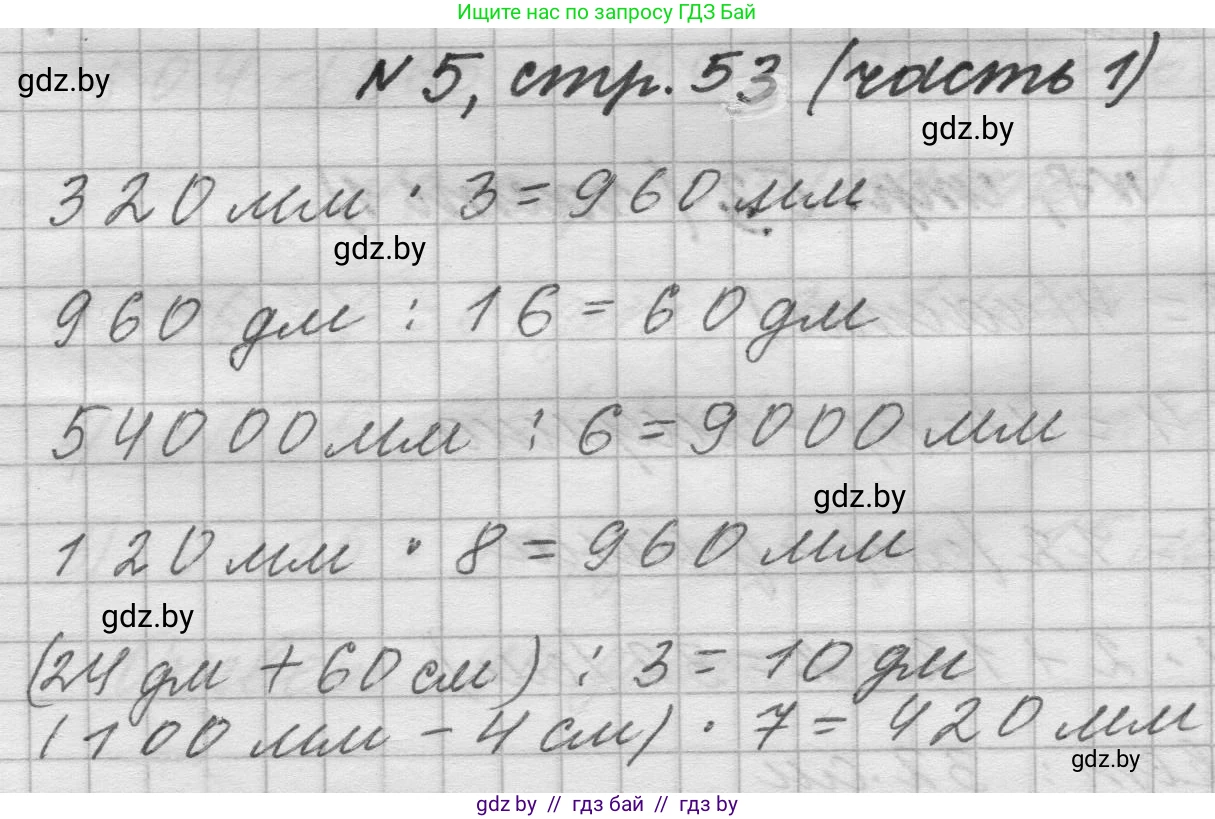 Ищите нас по запросу ГДЗ Бай
gdz.by
N 5, стр. 53 (часть 1)
gdz.by
320 мм · 3 = 960 мм
gdz.by
960 дм : 16 = 60 дм
54000 мм : 6 = 9000 мм
gdz.by
120 мм · 8 = 960 мм
gdz.by
(24 дм + 60 см) : 3 = 10 дм
(100 мм - 4 см) · 7 = 420 мм
gdz.by
gdz.by // гдз бай // гдз by